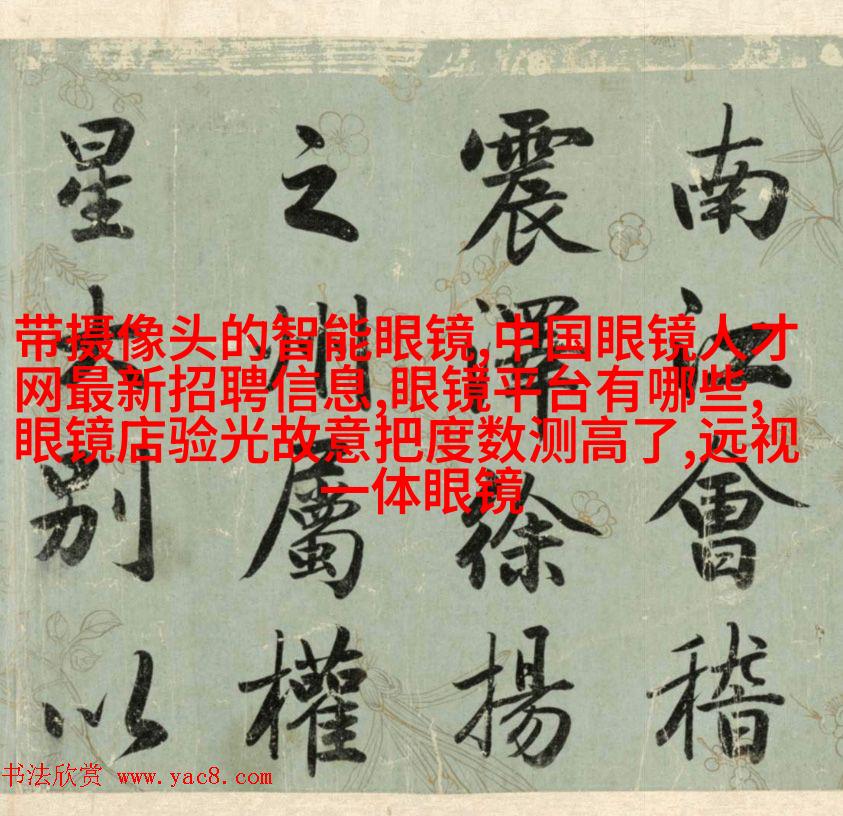 南江會稽
震澤徐揚
之州屬權
星土别以
带摄像头的智能眼镜,中国眼镜人才
网最新招聘信息,眼镜平台有哪些,
眼镜店验光故意把度数测高了,远视
一体眼镜
书法欣赏 www.yac8.com